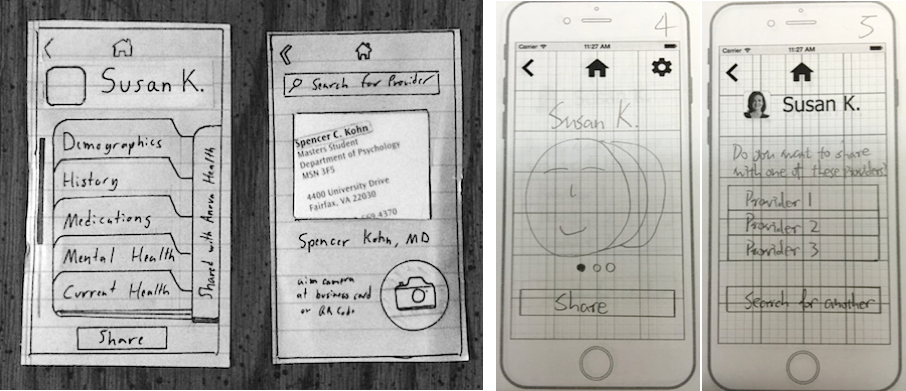 Susan K.
Demographics
History
Medications
Mental Health
Current Health
Shared with Anova Health
Share
Search for Provider
Spencer C. Kohn
Masters Student
Department of Psychology
MSN 3F5
4400 University Drive
Fairfax, VA 22030
669 4370
Spencer Kohn, MD
aim camera
at business card
or QR Code
4
Carrier
11:27 AM
Susan K.
Share
5
Carrier
11:27 AM
Susan K.
Do you want to share
with one of these providers?
Provider 1
Provider 2
Provider 3
Search for another